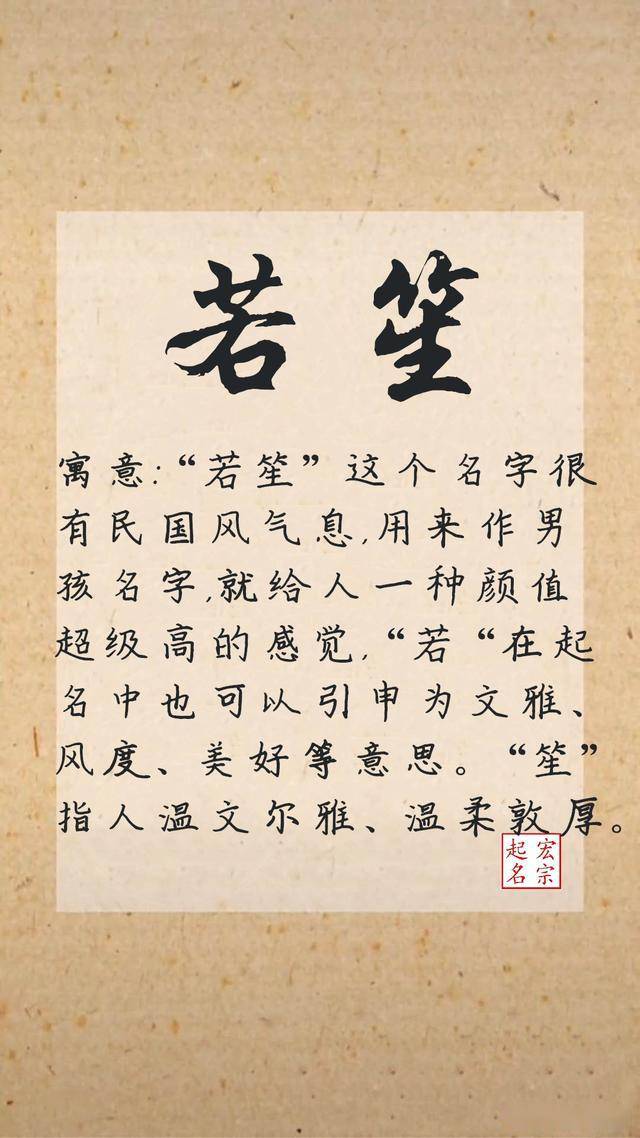 若笙
寓意:“若笙”这个名字很
有民国风气息,用来作男
孩名字,就给人一种颜值
超级高的感觉,“若“在起
名中也可以引申为文雅、
风度、美好等意思。“笙”
指人温文尔雅、温柔敦厚。
宏宗
起名